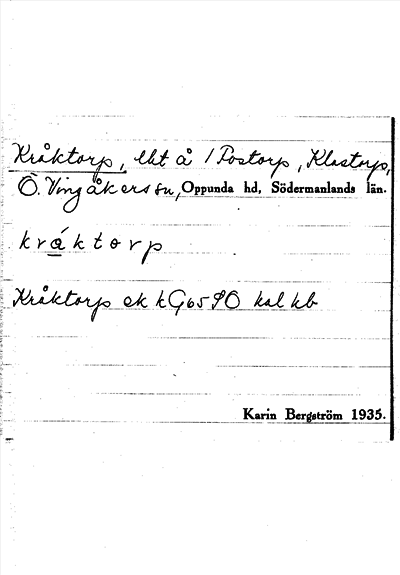 Kråktorp, lht å 1 Postorp, Klastorp,
Ö. Vingåkers sn, Oppunda hd, Södermanlands län.
kråktorp
Kråktorp ek kG65 SO kal kb
Karin Bergström 1935.